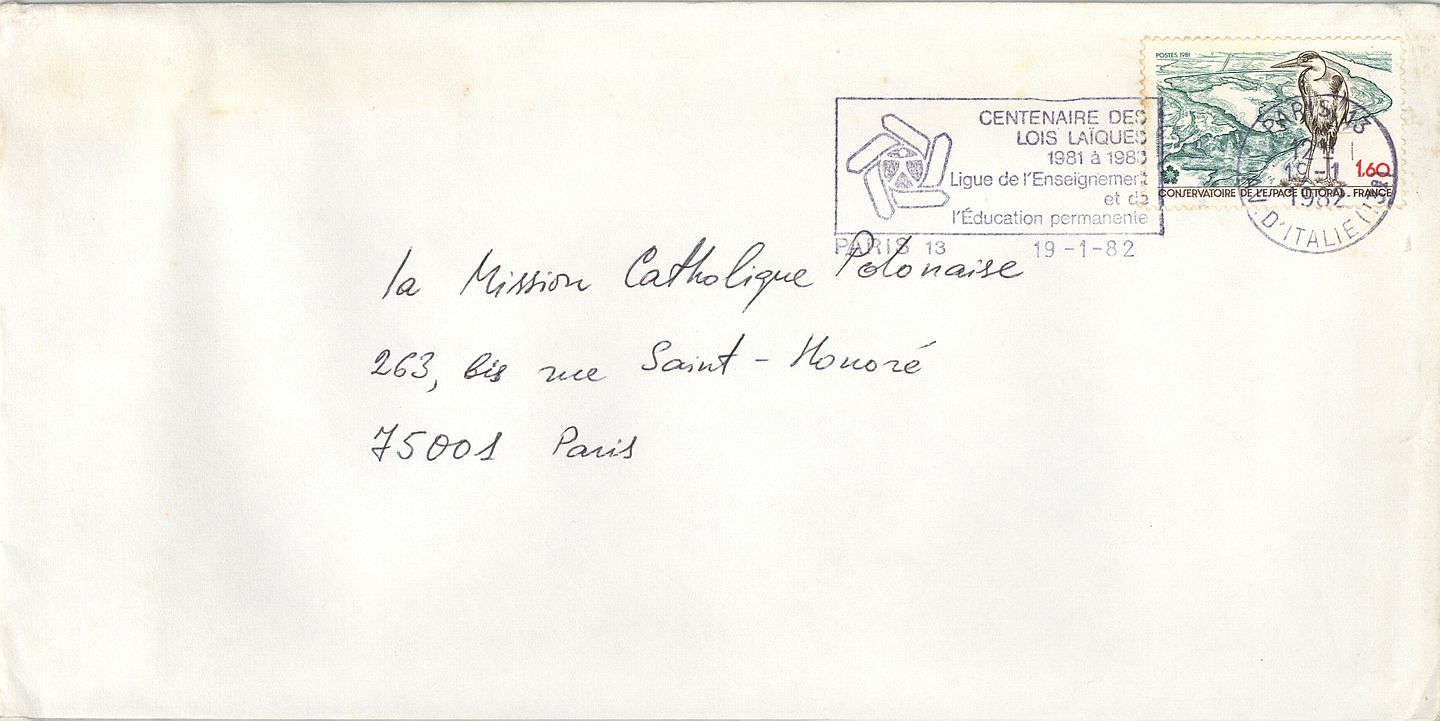 POSTES 1981
1,60
CONSERVATOIRE DE L'ESPACE LITTORAL - FRANCE
CENTENAIRE DES
LOIS LAÏQUES
1981 à 1983
Ligue de l'Enseignement
et de
l'Éducation permanente
PARIS 13 19-1-82
PARIS 13
12
19-1
1982
D'ITALIE
la Mission Catholique Polonaise
263, bis rue Saint-Honoré
75001 Paris